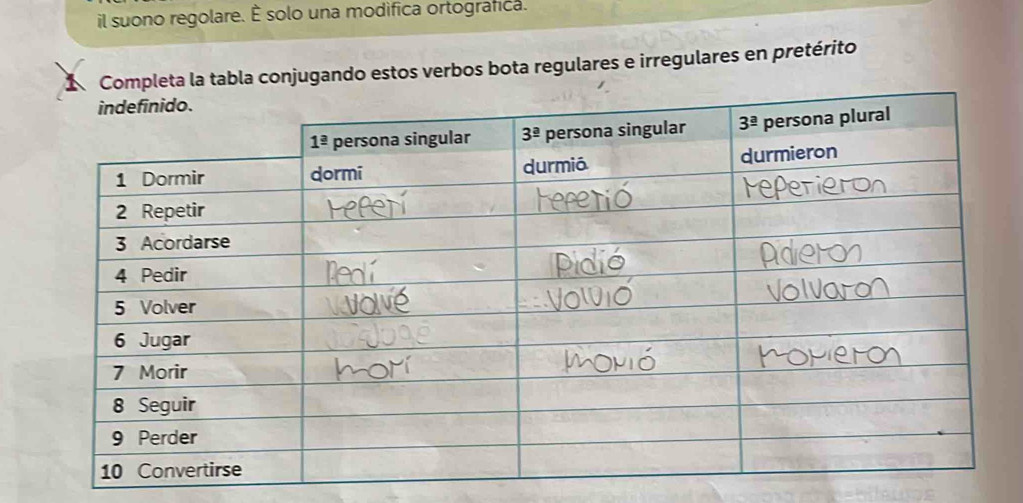 il suono regolare. È solo una modifica ortografica.
1 Completa la tabla conjugando estos verbos bota regulares e irregulares en pretérito
indefinido.
1ª persona singular 3ª persona singular 3ª persona plural
1 Dormir dormí durmió durmieron
2 Repetir reperí reperió reperieron
3 Acordarse
4 Pedir Pedí pidió pideron
5 Volver volvé volvió volvaron
6 Jugar
7 Morir morí morió morieron
8 Seguir
9 Perder
10 Convertirse